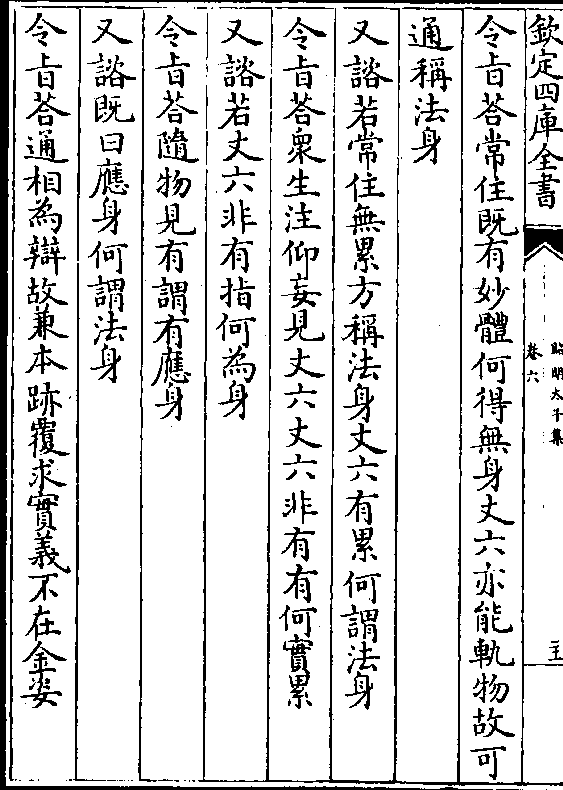 欽定四庫全書
昭明太子集
卷六
令旨荅常住既有妙體何得無身丈六亦能軌物故可
通稱法身
又諮若常住無累方稱法身丈六有累何謂法身
令旨荅衆生注仰妄見丈六丈六非有有何實累
又諮若丈六非有指何為身
令旨荅隨物見有謂有應身
又諮既曰應身何謂法身
令旨荅通相為辯故兼本跡覆求實義不在金姿